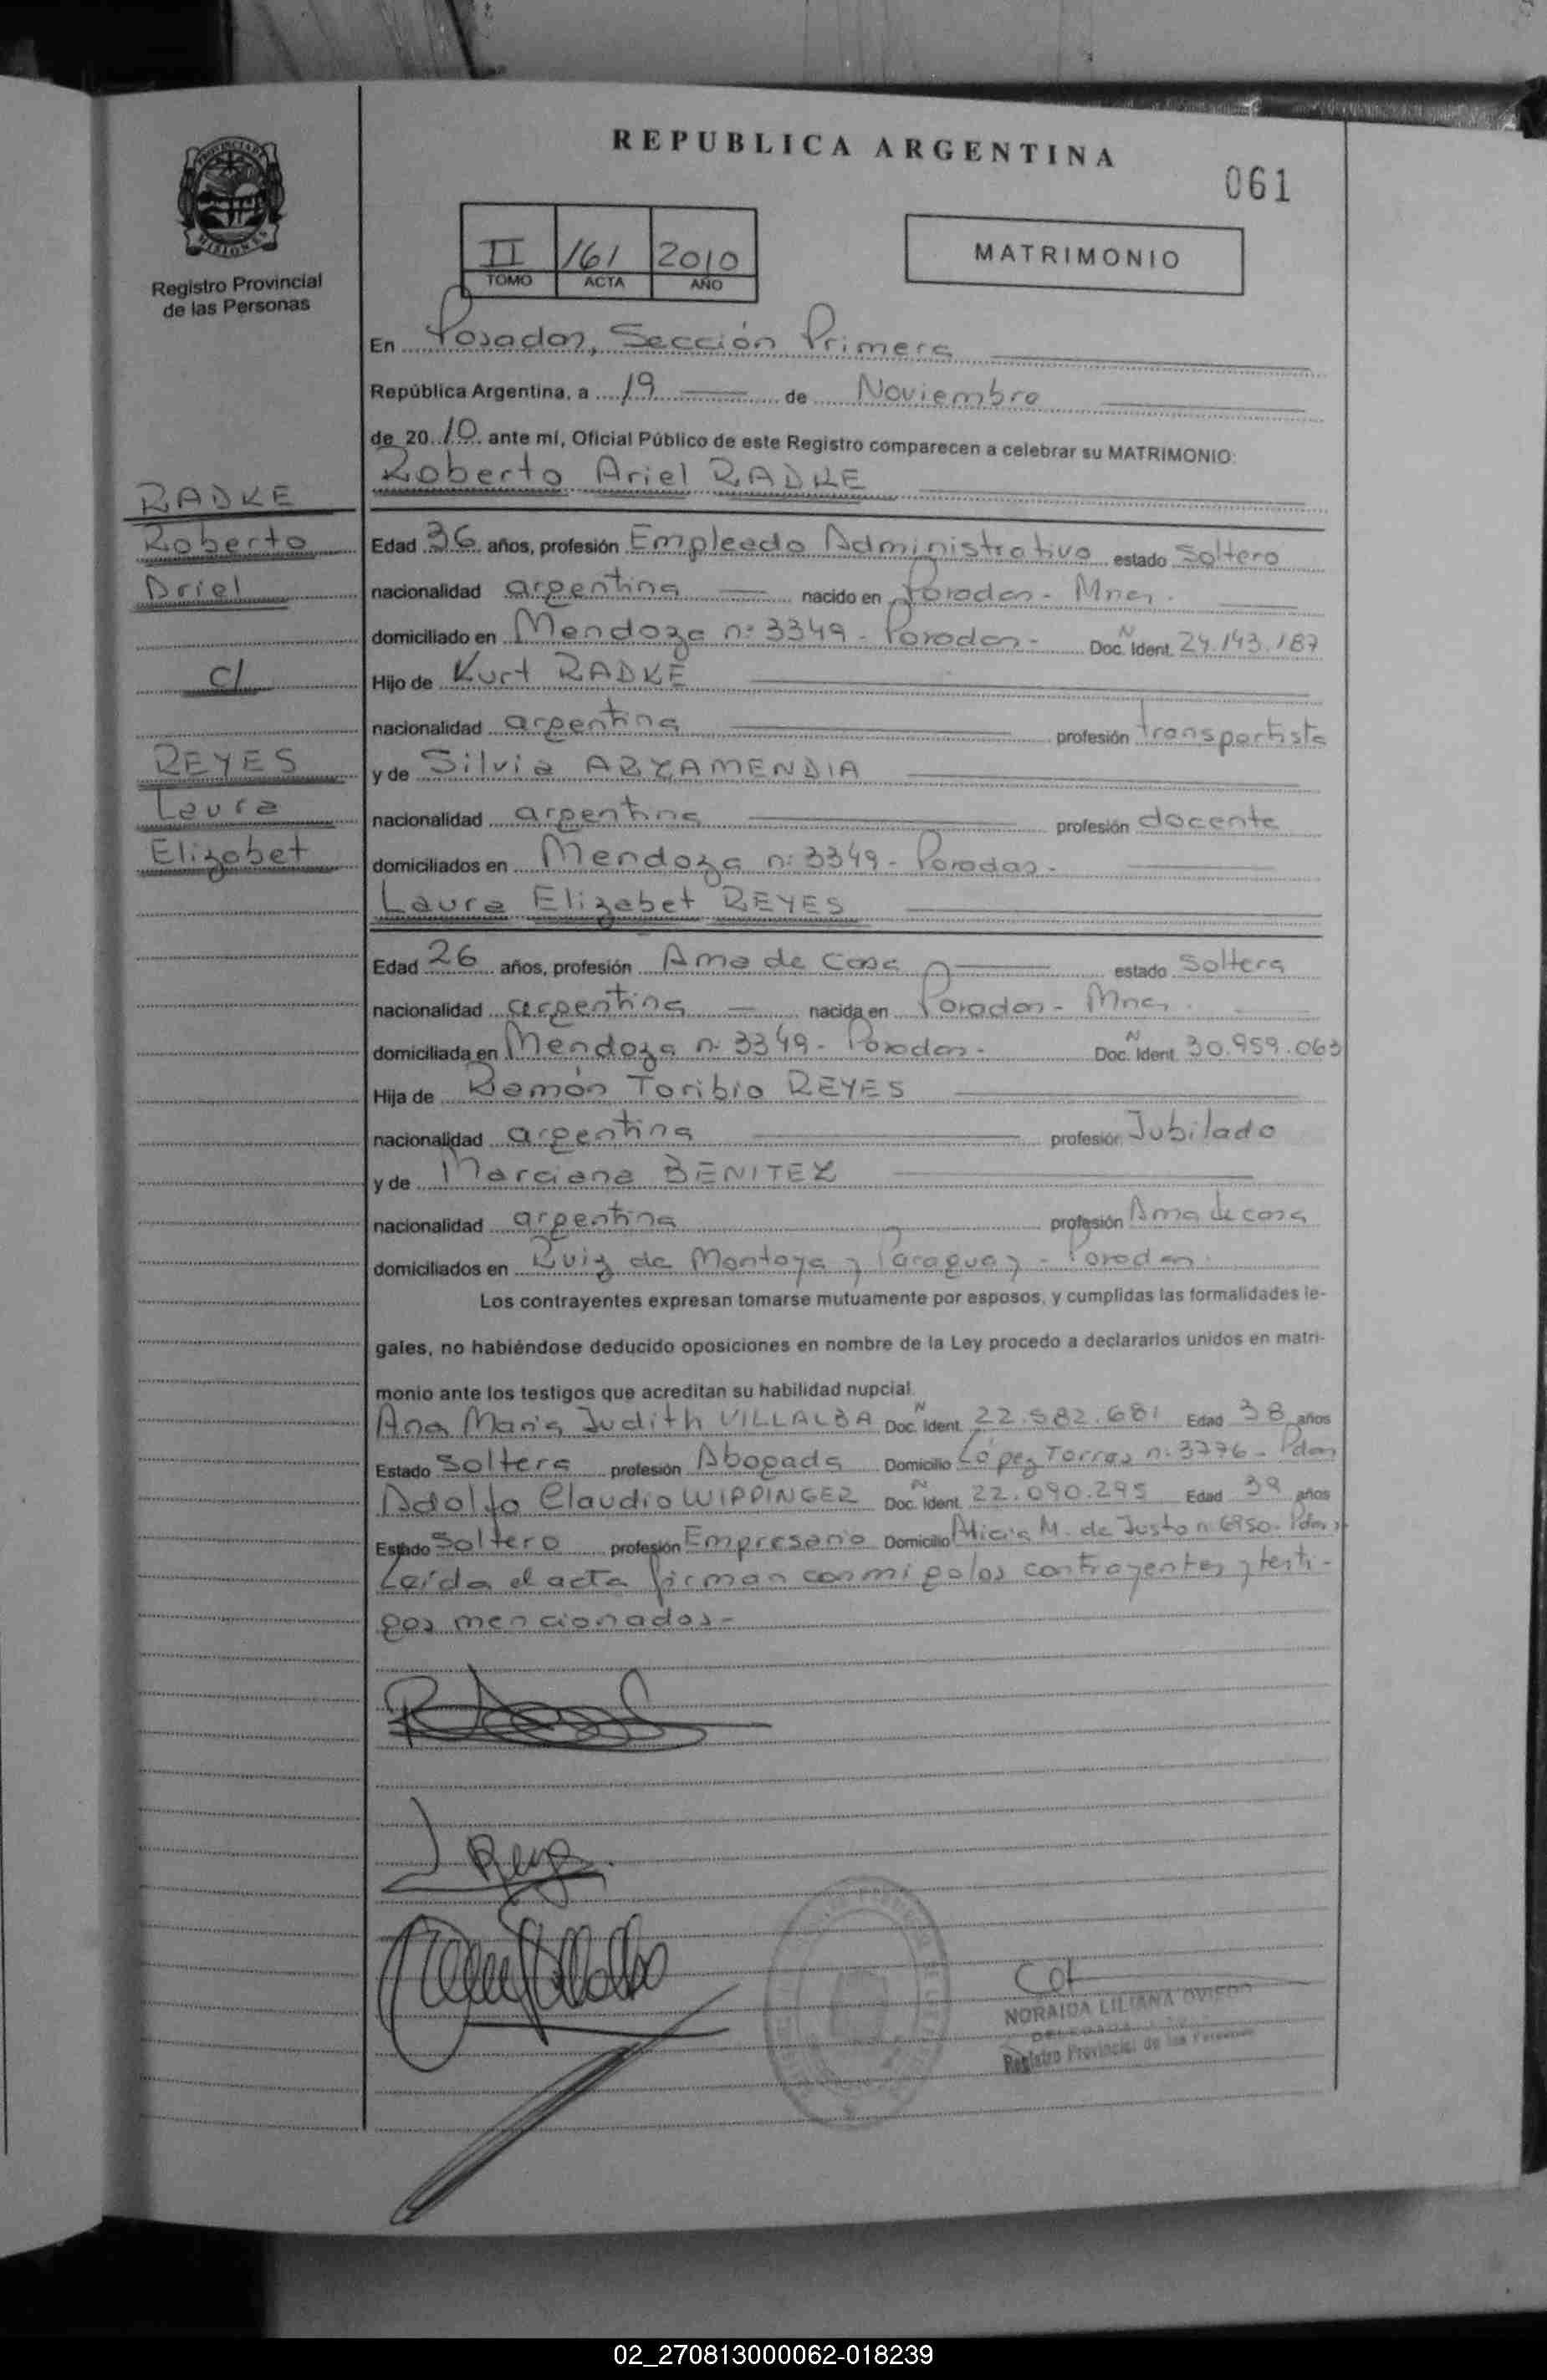 REPUBLICA ARGENTINA
061
PROVINCIA DE MISIONES
Registro Provincial
de las Personas
II 161 2010
TOMO ACTA AÑO
MATRIMONIO
En Posadas, Sección Primera
República Argentina, a 19 de Noviembre
de 2010 ante mí, Oficial Público de este Registro comparecen a celebrar su MATRIMONIO:
Roberto Ariel RADKE
RADKE
Roberto
Ariel
c/
REYES
Laura
Elizabet
Edad 36 años, profesión Empleado Administrativo estado Soltero
nacionalidad argentina nacido en Posadas - Mnes.
domiciliado en Mendoza nº 3349 - Posadas - Doc. Ident. N 24.143.187
Hijo de Kurt RADKE
nacionalidad argentina profesión transportista
y de Silvia ARZAMENDIA
nacionalidad argentina profesión docente
domiciliados en Mendoza nº 3349 - Posadas -
Laura Elizabet REYES
Edad 26 años, profesión Ama de Casa estado Soltera
nacionalidad argentina nacida en Posadas - Mnes.
domiciliada en Mendoza nº 3349 - Posadas - Doc. Ident. N 30.959.063
Hija de Ramón Toribio REYES
nacionalidad argentina profesión Jubilado
y de Marciana BENITEZ
nacionalidad argentina profesión Ama de casa
domiciliados en Ruiz de Montoya y Paraguay - Posadas.
Los contrayentes expresan tomarse mutuamente por esposos, y cumplidas las formalidades le-
gales, no habiéndose deducido oposiciones en nombre de la Ley procedo a declararlos unidos en matri-
monio ante los testigos que acreditan su habilidad nupcial
Ana María Judith VILLALBA Doc. Ident. N 22.582.681 Edad 38 años
Estado Soltera profesión Abogada Domicilio López Torres nº 3776 - Pdas
Adolfo Claudio WIPPINGER Doc. Ident. N 22.090.295 Edad 39 años
Estado Soltero profesión Empresario Domicilio Alicia M. de Justo nº 6950 - Pdas
Leída el acta firman conmigo los contrayentes y testi-
gos mencionados -
L Reyes
NORAIDA LILIANA OVIEDO
DELEGADA
Registro Provincial de las Personas
02_270813000062-018239